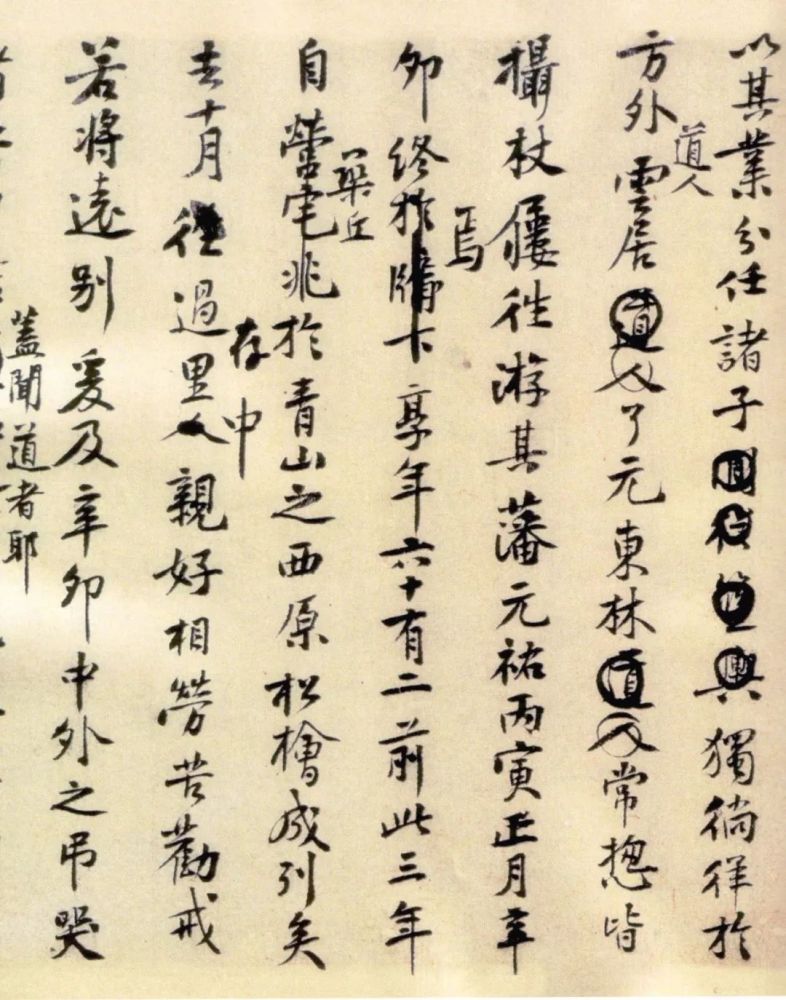 以其業分任諸子獨徜徉於
道人
方外雲居道人了元東林道人常揔皆
攝杖屨徃游其藩元祐丙寅正月辛
焉
卯終於牖下享年六十有二前此三年
築丘
自營宅兆於青山之西原松檜成列矣
存中
去十月過里人親好相勞苦勸戒
若將遠別爰及辛卯中外之吊哭
蓋聞道者耶